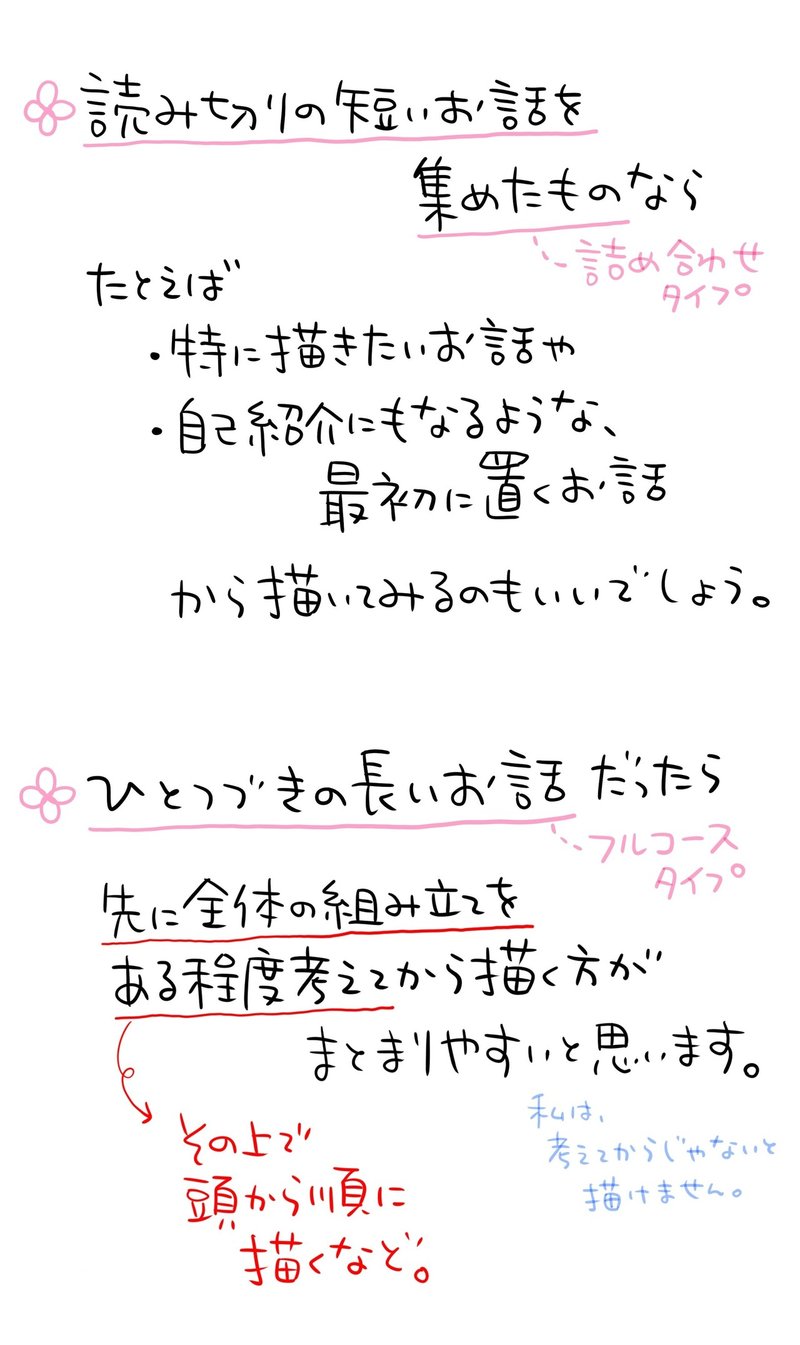 読み切りの短いお話を
集めたものなら
詰め合わせ
タイプ
たとえば
・特に描きたいお話や
・自己紹介にもなるような、
最初に置くお話
から描いてみるのもいいでしょう。
ひとつづきの長いお話だったら
フルコース
タイプ
先に全体の組み立てを
ある程度考えてから描く方が
まとまりやすいと思います。
その上で
頭から順に
描くなど。
私は、
考えてからじゃないと
描けません。